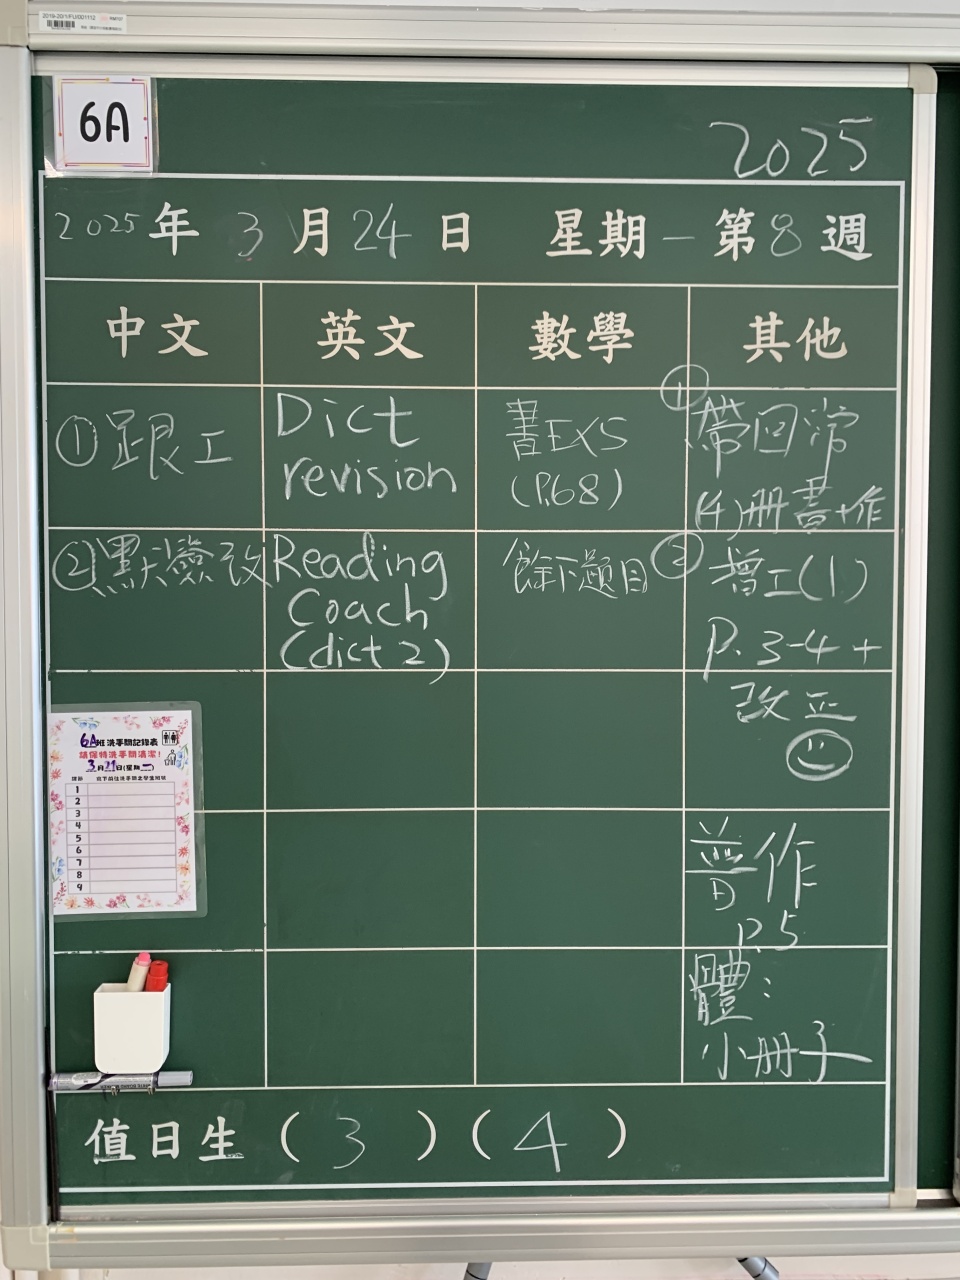 2019-20/1/FU/001112
6A
2025
2025年 3月24日 星期一 第8週
中文 英文 數學 其他
①跟工
Dict
revision
書EX5
(P.68)
①帶回常
(4)冊書+作
②默簽改
Reading
Coach
(dict 2)
餘下題目
②增工(1)
P. 3-4 +
改正
6A班洗手間記錄表
請保持洗手間清潔!
3月24日(星期一)
課節
1
2
3
4
5
6
7
8
9
普作
P.5
體:
小冊子
值日生 (3) (4)